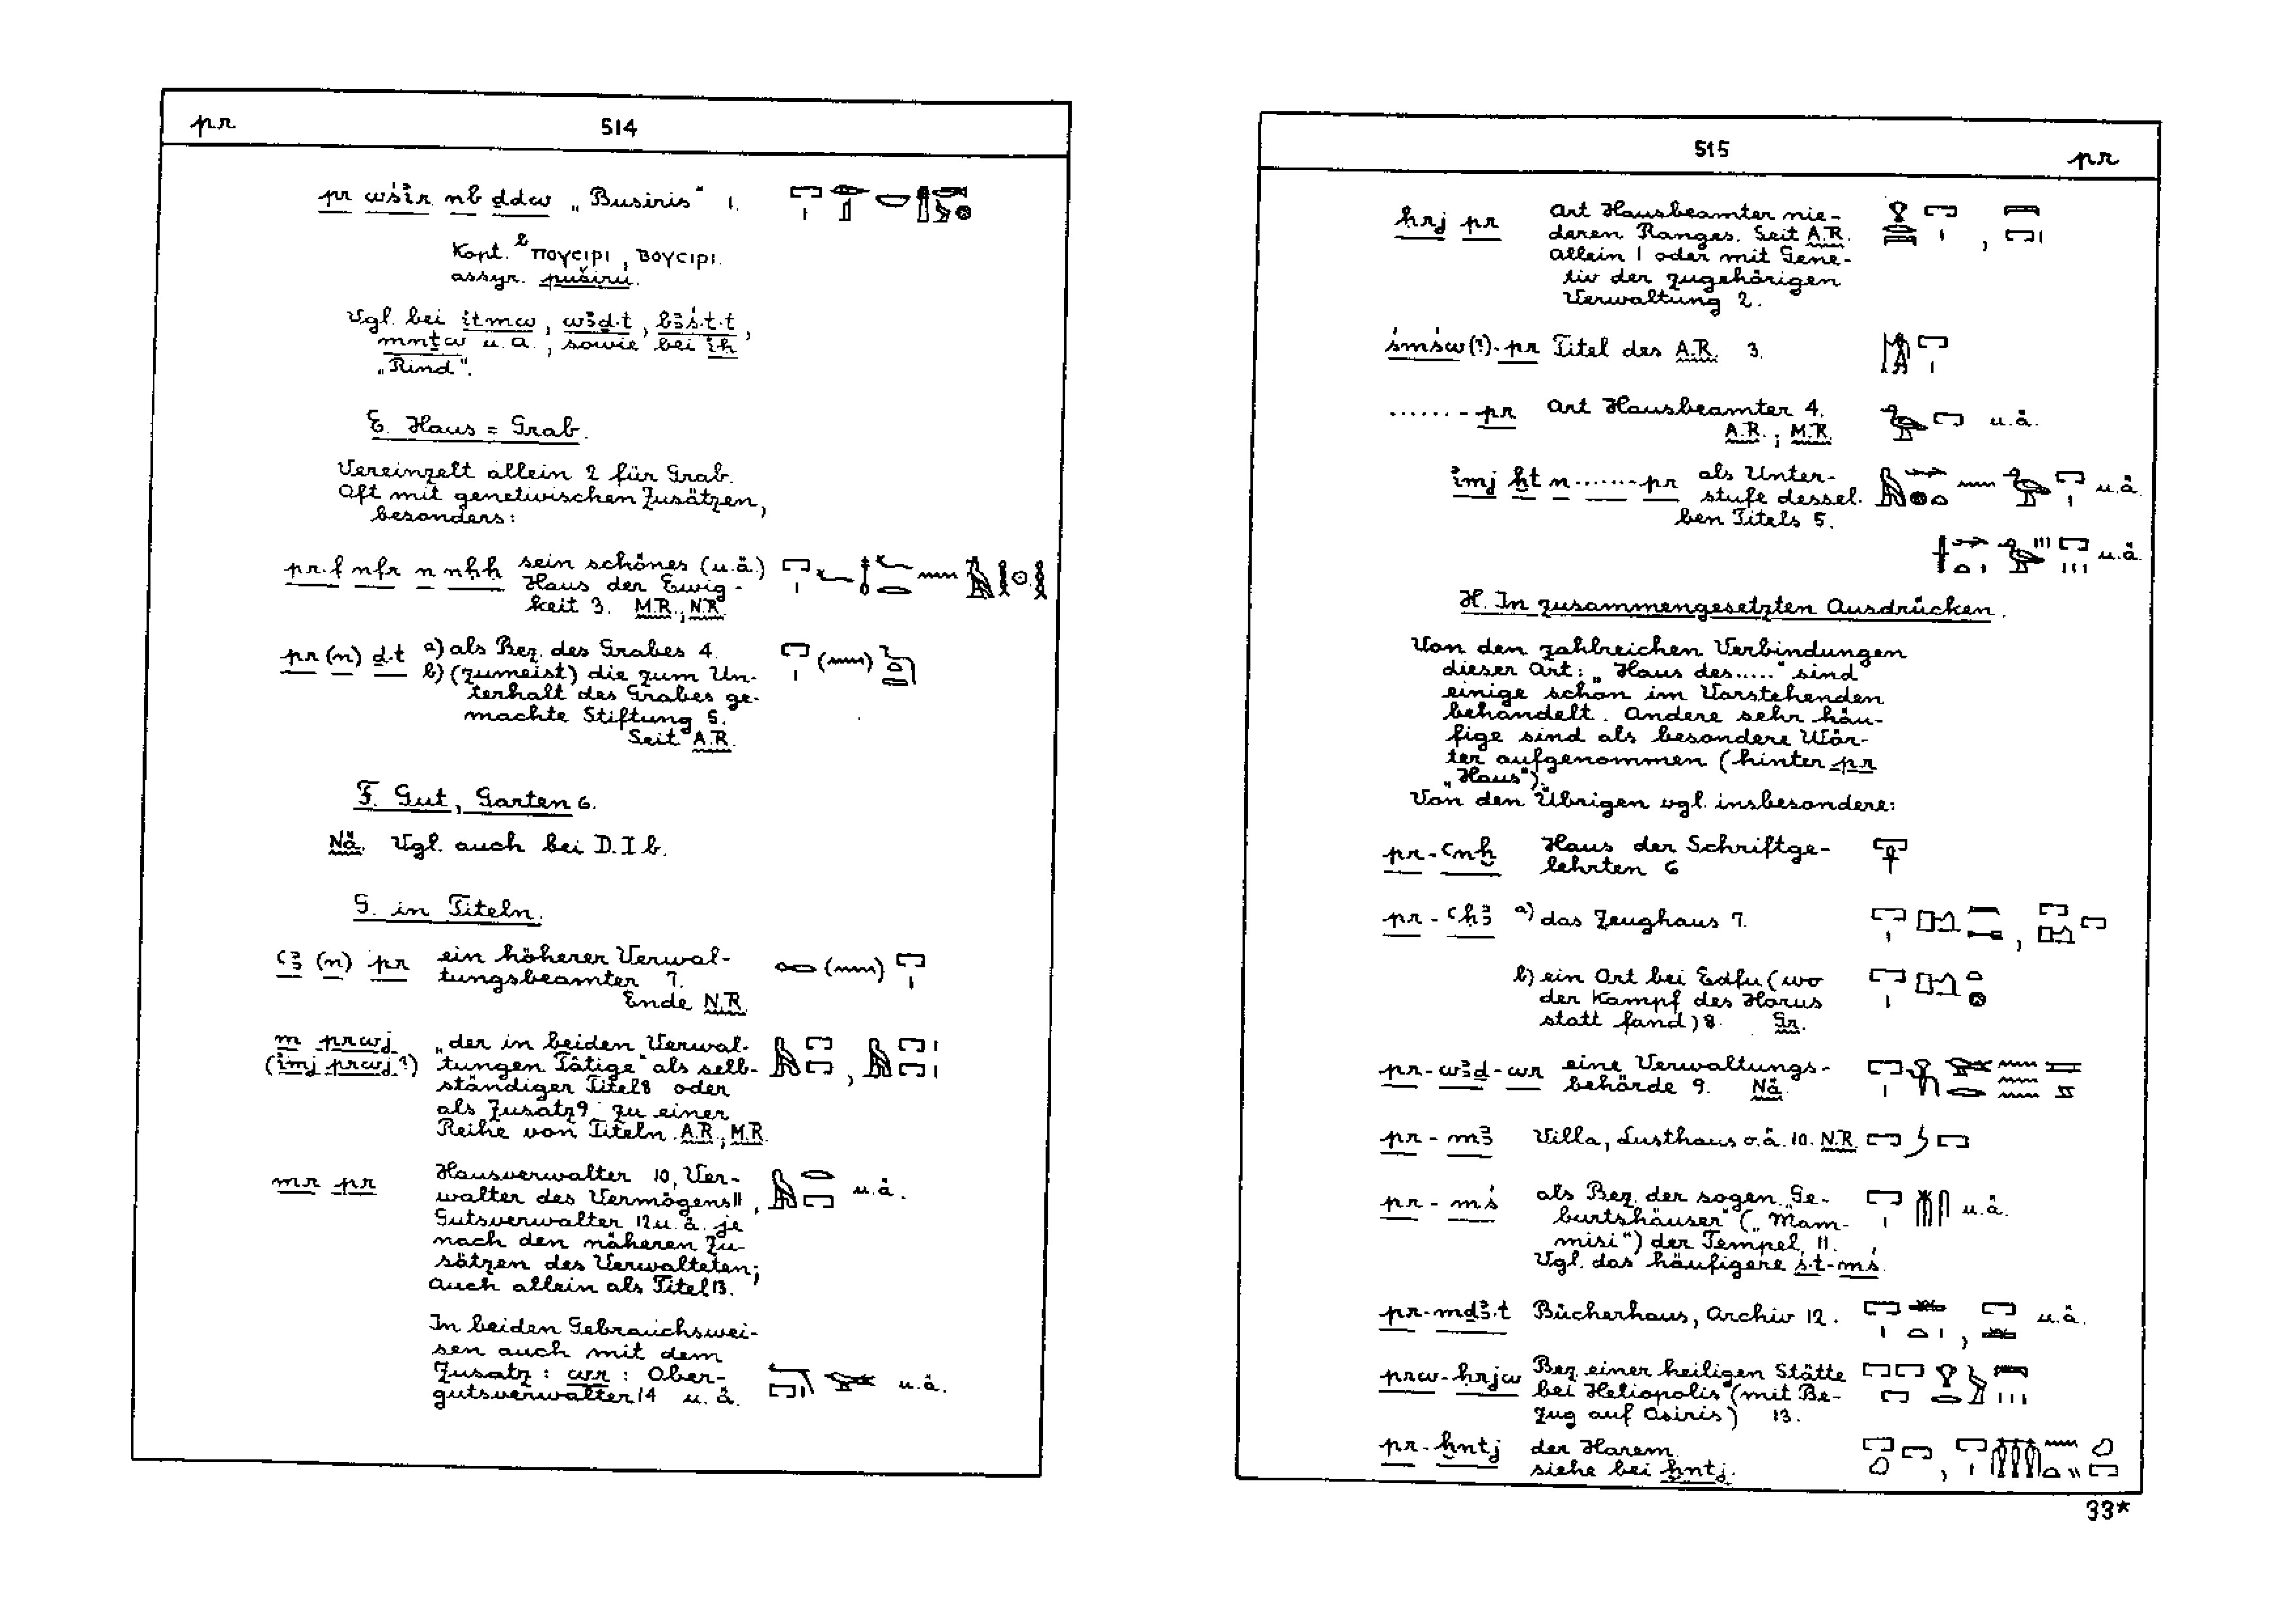 pr 514
pr wśı͗r nb ḏdw „Busiris“ 1.
Kopt. b ΠΟΥСΙΡΙ, ΒΟΥСΙΡΙ.
assyr. puširu.
Vgl. bei ı͗tmw, wꜣḏ·t, bꜣś·t·t,
mnṯw u. a., sowie bei ı͗ḥ
„Rind“.
E. Haus = Grab.
Vereinzelt allein 2 für Grab.
Oft mit genetivischen Zusätzen,
besonders:
pr·f nfr n nḥḥ sein schönes (u.ä.)
Haus der Ewig-
keit 3. M.R., N.R.
pr (n) ḏ·t a) als Bez. des Grabes 4.
b) (zumeist) die zum Un-
terhalt des Grabes ge-
machte Stiftung 5.
Seit A.R.
F. Gut, Garten 6.
Nä. Vgl. auch bei D. I b.
G. in Titeln.
ꜥꜣ (n) pr ein höherer Verwal-
tungsbeamter 7.
Ende N.R.
m prwj „der in beiden Verwal-
(ı͗mj prwj?) tungen Tätige“ als selb-
ständiger Titel 8 oder
als Zusatz 9 zu einer
Reihe von Titeln. A.R., M.R.
mr pr Hausverwalter 10, Ver-
walter des Vermögens 11, u.ä.
Gutsverwalter 12 u. ä. je
nach den näheren Zu-
sätzen des Verwalteten;
auch allein als Titel 13.
In beiden Gebrauchswei-
sen auch mit dem
Zusatz: wr: Ober- u.ä.
gutsverwalter 14 u. ä.
515 pr
ḥrj pr Art Hausbeamter nie-
deren Ranges. Seit A.R.
allein 1 oder mit Gene-
tiv der zugehörigen
Verwaltung 2.
śmśw(?)-pr Titel des A.R. 3.
.......-pr Art Hausbeamter 4. u.ä.
A.R.; M.R.
ı͗mj ḫt n.......pr als Unter-
stufe dessel- u.ä.
ben Titels 5.
u.ä.
H. In zusammengesetzten Ausdrücken.
Von den zahlreichen Verbindungen
dieser Art: „Haus des.....“ sind
einige schon im Vorstehenden
behandelt. Andere sehr häu-
fige sind als besondere Wör-
ter aufgenommen (hinter pr
„Haus“).
Von den Übrigen vgl. insbesondere:
pr-ꜥnḫ Haus der Schriftge-
lehrten 6
pr-ꜥḥꜣ a) das Zeughaus 7.
b) ein Ort bei Edfu (wo
der Kampf des Horus
statt fand) 8. Gr.
pr-wꜣḏ-wr eine Verwaltungs-
behörde 9. Nä.
pr-mꜣ Villa, Lusthaus o.ä. 10. N.R.
pr-mś als Bez. der sogen. „Ge-
burtshäuser“ („Mam- u.ä.
misi“) der Tempel. 11.
Vgl. das häufigere ś·t-mś.
pr-mḏꜣ·t Bücherhaus, Archiv 12. u.ä.
prw-ḥrjw Bez. einer heiligen Stätte
bei Heliopolis (mit Be-
zug auf Osiris) 13.
pr-ḫntj der Harem.
siehe bei ḫntj.
33*